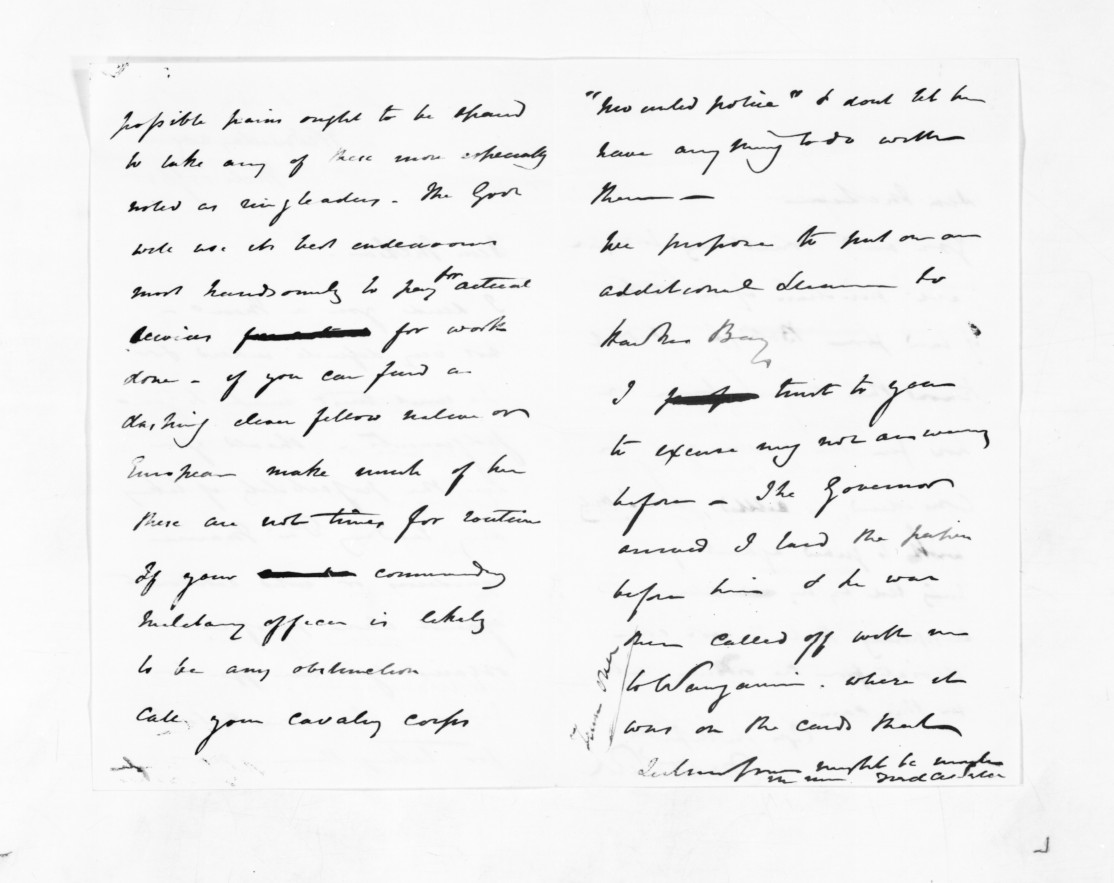 possible pains ought to be spared
to take any of these more especially
noted as ringleaders - The Govr
will use its best endeavours
most handsomely to pay for actual
services for work
done - if you can find a
dashing clever fellow native or
European make much of him
these are not times for routine
If your commanding
Military officer is likely
to be any obstruction
call your cavalry corps
"Mounted police" & dont let him
have anything to do with
them -
We propose to put on an
additional steamer to
Hawkes Bay
I trust to you
to excuse my not answering
before - The Governor
arrived I laid the papers
before him & he was
then called off with me
to Wanganui. where it
was on the cards that
might be made
Turn over